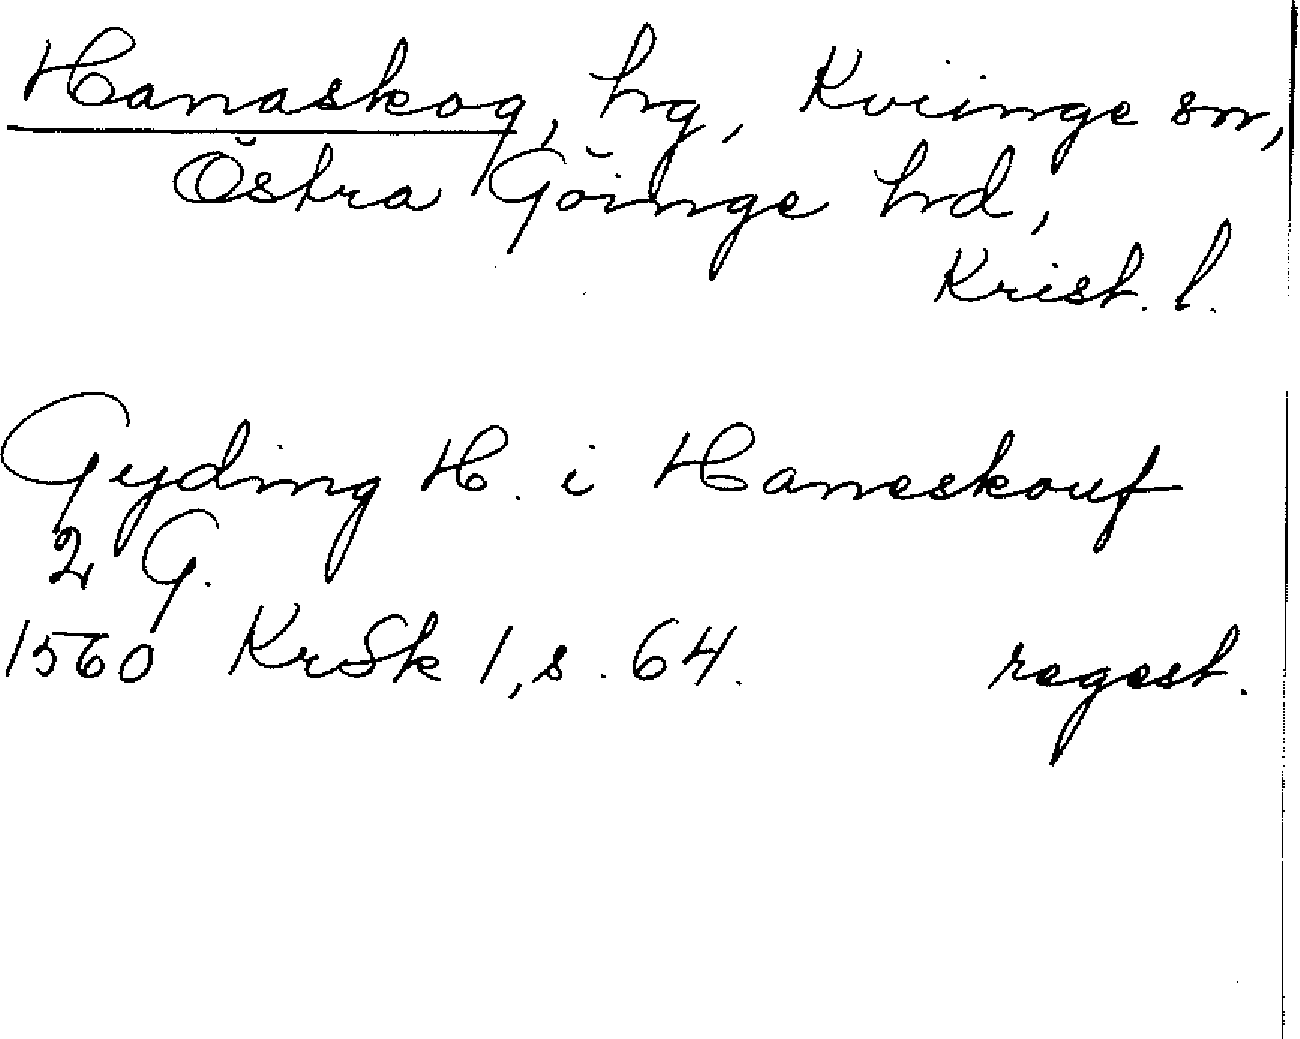 Hanaskog, hg, Kviinge sn,
Östra Göinge hd,
Krist. l.
Gyding H. i Haneskouf
2 G.
1560 KrSk 1, s. 64. regest.